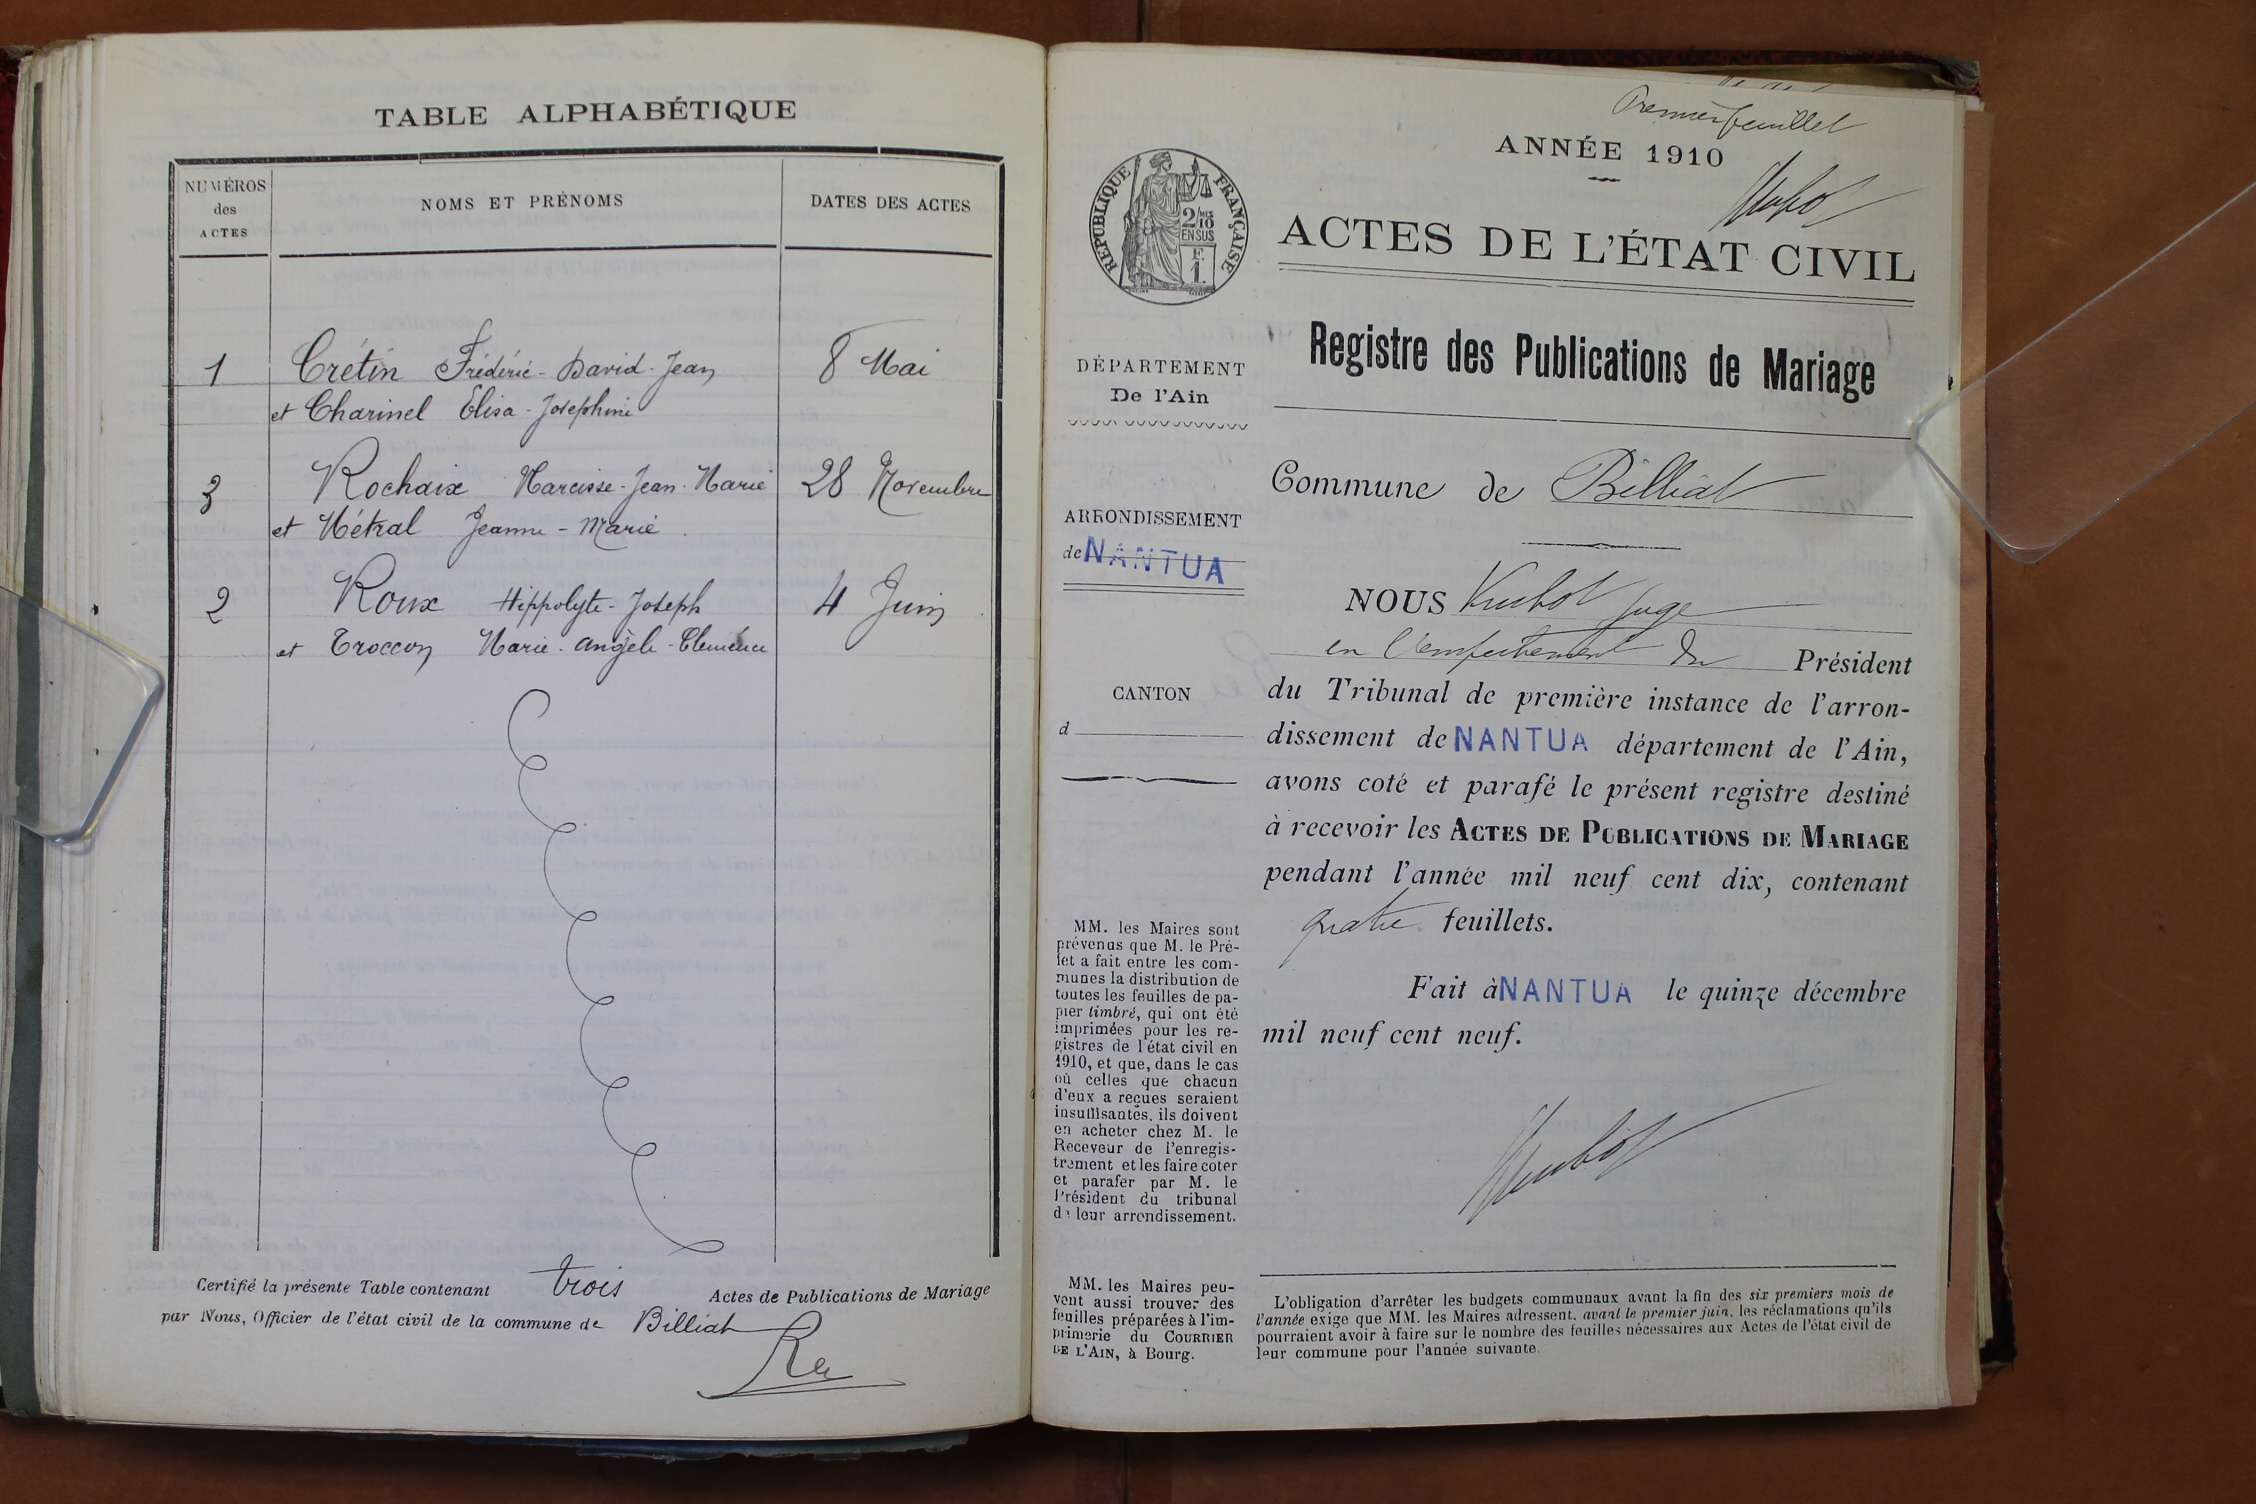 TABLE ALPHABÉTIQUE
NUMÉROS
des
ACTES
NOMS ET PRÉNOMS
DATES DES ACTES
1 Crétin Frédéric-David-Jean 8 Mai
et Charinel Elisa-Josephine
3 Rochaix Narcisse-Jean-Marie 28 Novembre
et Métral Jeanne-Marie
2 Roux Hippolyte-Joseph 4 Juin
et Troccon Marie-Angèle-Clémence
Certifié la présente Table contenant trois Actes de Publications de Mariage
par Nous, Officier de l'état civil de la commune de Billiat
Premier feuillet
ANNÉE 1910
RÉPUBLIQUE FRANÇAISE
2/10
EN SUS
F.
1.
ACTES DE L'ÉTAT CIVIL
Registre des Publications de Mariage
DÉPARTEMENT
De l'Ain
ARRONDISSEMENT
de NANTUA
CANTON
d
MM. les Maires sont
prévenus que M. le Pré-
fet a fait entre les com-
munes la distribution de
toutes les feuilles de pa-
pier timbré, qui ont été
imprimées pour les re-
gistres de l'état civil en
1910, et que, dans le cas
où celles que chacun
d'eux a reçues seraient
insuffisantes, ils doivent
en acheter chez M. le
Receveur de l'enregis-
trement et les faire coter
et parafer par M. le
Président du tribunal
de leur arrondissement.
MM. les Maires peu-
vent aussi trouver des
feuilles préparées à l'im-
primerie du COURRIER
DE L'AIN, à Bourg.
Commune de Billiat
NOUS juge
en l'empêchement du Président
du Tribunal de première instance de l'arron-
dissement de NANTUA département de l'Ain,
avons coté et parafé le présent registre destiné
à recevoir les ACTES DE PUBLICATIONS DE MARIAGE
pendant l'année mil neuf cent dix, contenant
quatre feuillets.
Fait à NANTUA le quinze décembre
mil neuf cent neuf.
L'obligation d'arrêter les budgets communaux avant la fin des six premiers mois de
l'année exige que MM. les Maires adressent, avant le premier juin, les réclamations qu'ils
pourraient avoir à faire sur le nombre des feuilles nécessaires aux Actes de l'état civil de
leur commune pour l'année suivante.